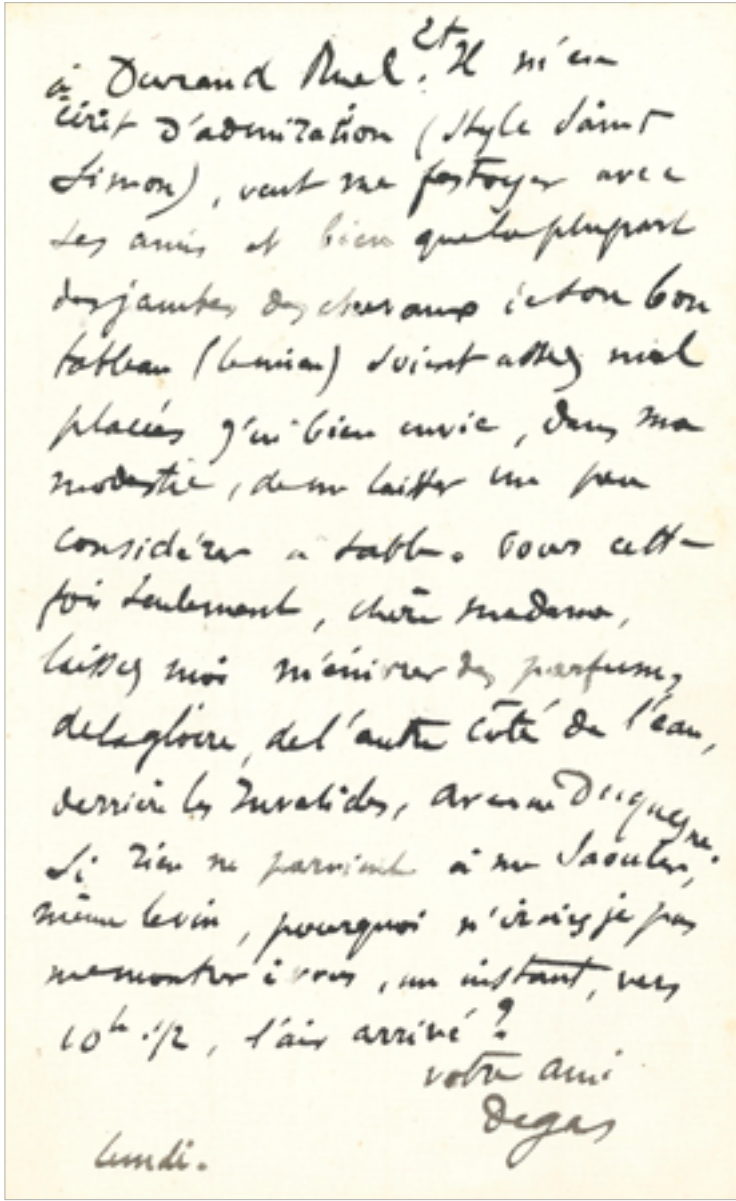 à Durand Ruel. Et Il m'en
écrit d'admiration (style Saint
Simon), veut me festoyer avec
ses amis et bien que la plupart
des jambes des chevaux de son bon
tableau (le mien) soient assez mal
placées j'ai bien envie, dans ma
modestie, de me laisser un peu
considérer à table. Pour cette
fois seulement, chère madame,
laissez moi m'enivrer des parfums
de la gloire, de l'autre côté de l'eau,
derrière les Invalides, avenue Duquesne.
Si rien ne parvient à me saouler,
même le vin, pourquoi n'irais je pas
me montrer à vous, un instant, vers
10h 1/2, l'air arrivé ?
votre ami
Degas
lundi.